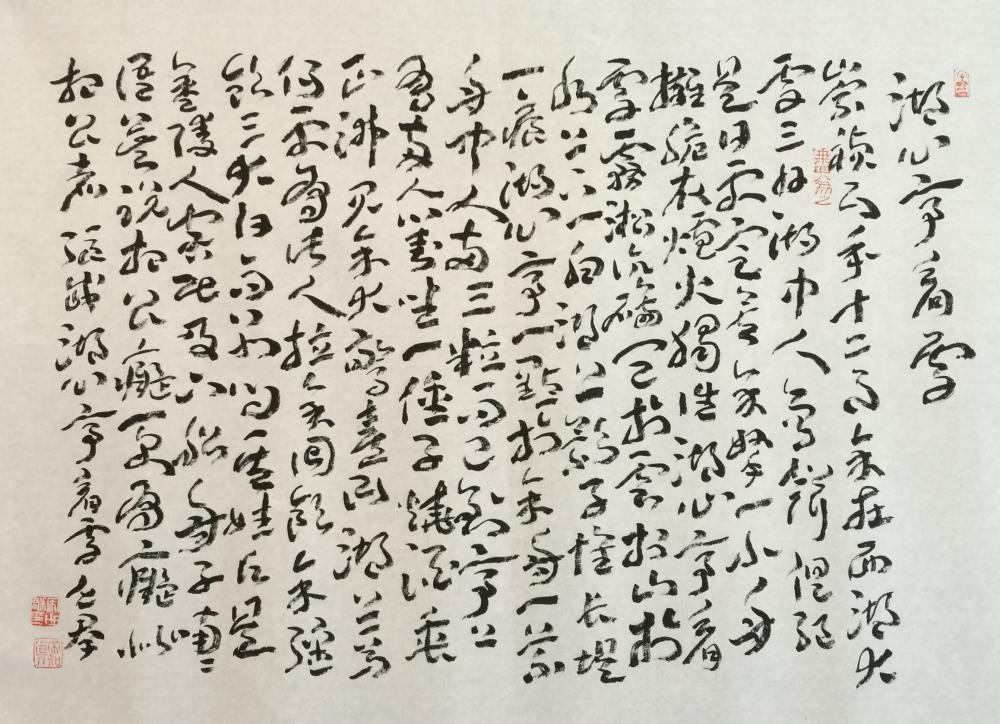 湖心亭看雪
崇禎五年十二月余在西湖大
雪三日湖中人鳥聲俱絕
是日更定矣余拏一小舟
擁毳衣爐火獨往湖心亭看
雪霧淞沆碭天於雲於山於
水上下一白湖上影子惟長堤
一痕湖心亭一點於余舟一芥
舟中人兩三粒而已到亭上
有兩人對坐一僮子燒酒爐
正沸見余大驚喜曰湖上焉
得更有此人拉余同飲余強
飲三大白而別问其姓氏是
金陵人客此及下船舟子喃〻
莫说相公癡更有癡似
相公者 張岱湖心亭看雪